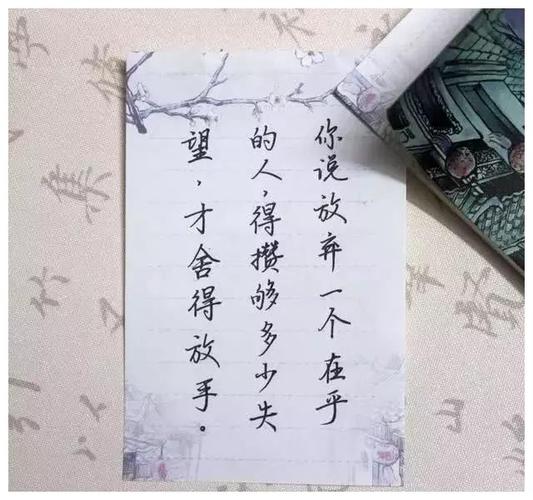 你说放弃一个在乎
的人，得攒够多少失
望，才舍得放手。